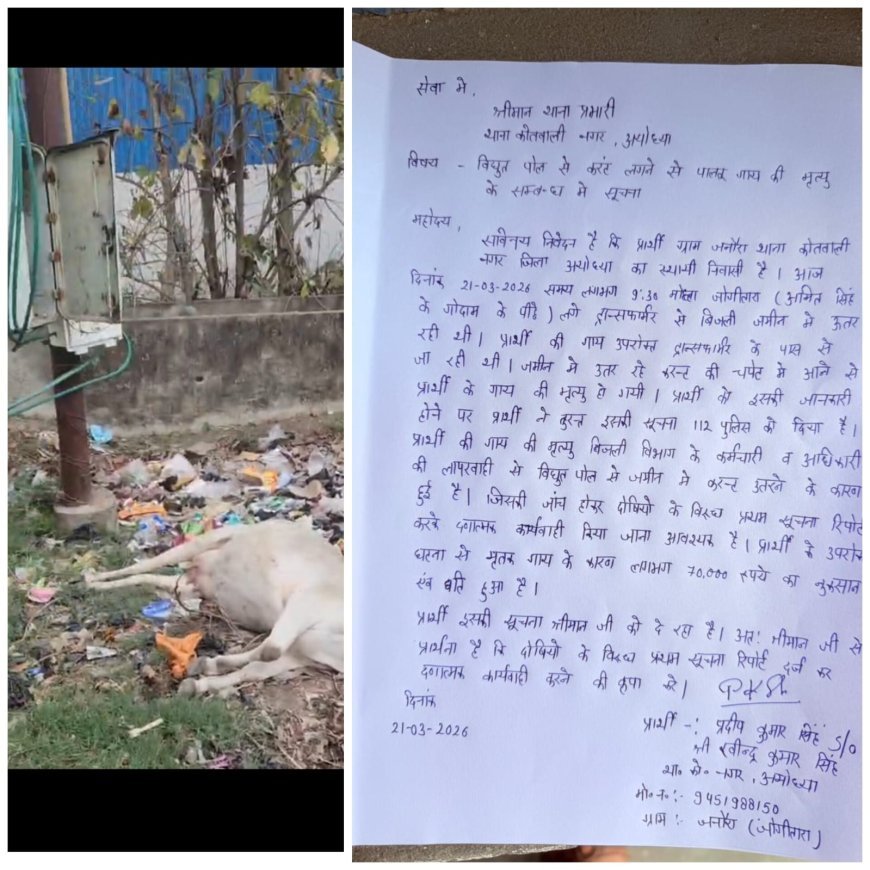 सेवा मे,
श्रीमान थाना प्रभारी
थाना कोतवाली नगर, अयोध्या
विषय - विद्युत पोल से करंट लगने से पालतू गाय की मृत्यु
के सम्बन्ध मे सूचना
महोदय,
सविनय निवेदन है कि प्रार्थी ग्राम जनौरा थाना कोतवाली
नगर जिला अयोध्या का स्थायी निवासी है। आज
दिनांक 21-03-2026 समय लगभग 9:30 मोहल्ला जोगीतारा (अमित सिंह
के गोदाम के पीछे) लगे ट्रान्सफार्मर से बिजली जमीन मे उतर
रही थी। प्रार्थी की गाय उपरोक्त ट्रान्सफार्मर के पास से
जा रही थी। जमीन मे उतर रहे करन्ट की चपेट मे आने से
प्रार्थी के गाय की मृत्यु हो गयी। प्रार्थी को इसकी जानकारी
होने पर प्रार्थी ने तुरन्त इसकी सूचना 112 पुलिस को दिया है।
प्रार्थी की गाय की मृत्यु बिजली विभाग के कर्मचारी व अधिकारी
की लापरवाही से विद्युत पोल से जमीन मे करन्ट उतरने के कारण
हुई है। जिसकी जांच होकर दोषियो के विरूध प्रथम सूचना रिपोर्ट
करके दण्डात्मक कार्यवाही किया जाना आवश्यक है। प्रार्थी के उपरोक्त
घटना से मृतक गाय के कारण लगभग 70,000 रुपये का नुकसान
एंव क्षति हुआ है।
प्रार्थी इसकी सूचना श्रीमान जी को दे रहा है। अतः श्रीमान जी से
प्रार्थना है कि दोषियो के विरूध प्रथम सूचना रिपोर्ट दर्ज कर
दण्डात्मक कार्यवाही करने की कृपा करे।
दिनांक
21-03-2026
प्रार्थी -: प्रदीप कुमार सिंह S/o
श्री रवीन्द्र कुमार सिंह
था० को० नगर, अयोध्या
मो० न०:- 9451988150
ग्राम :- जनौरा (जोगीतारा)